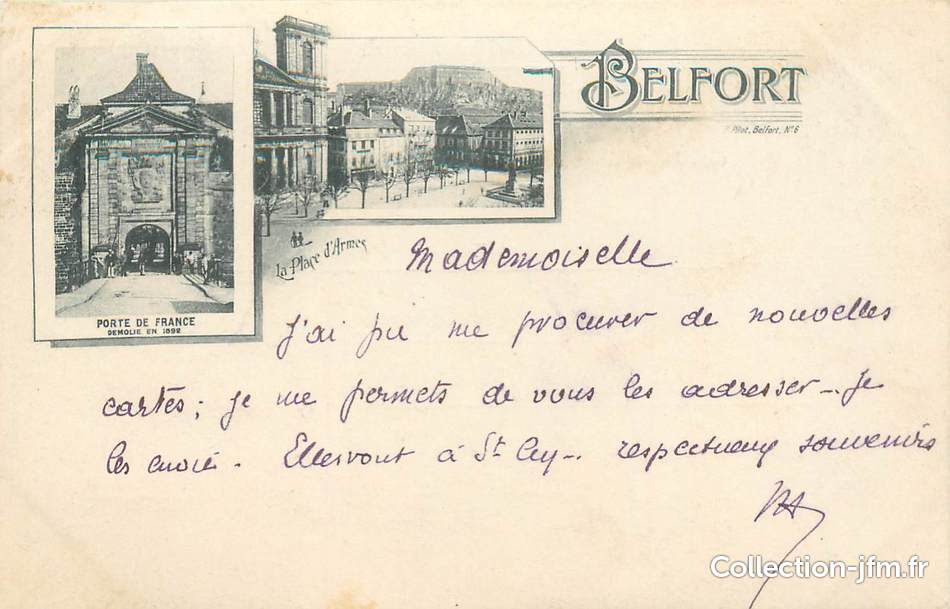 BELFORT
Pilot, Belfort, No 6
PORTE DE FRANCE
DEMOLIE EN 1892
La Place d'Armes
Mademoiselle
J'ai pu me procurer de nouvelles
cartes; je me permets de vous les adresser - je
les envoie. Elles vont à St Cyr - respectueux souvenirs
Collection-jfm.fr